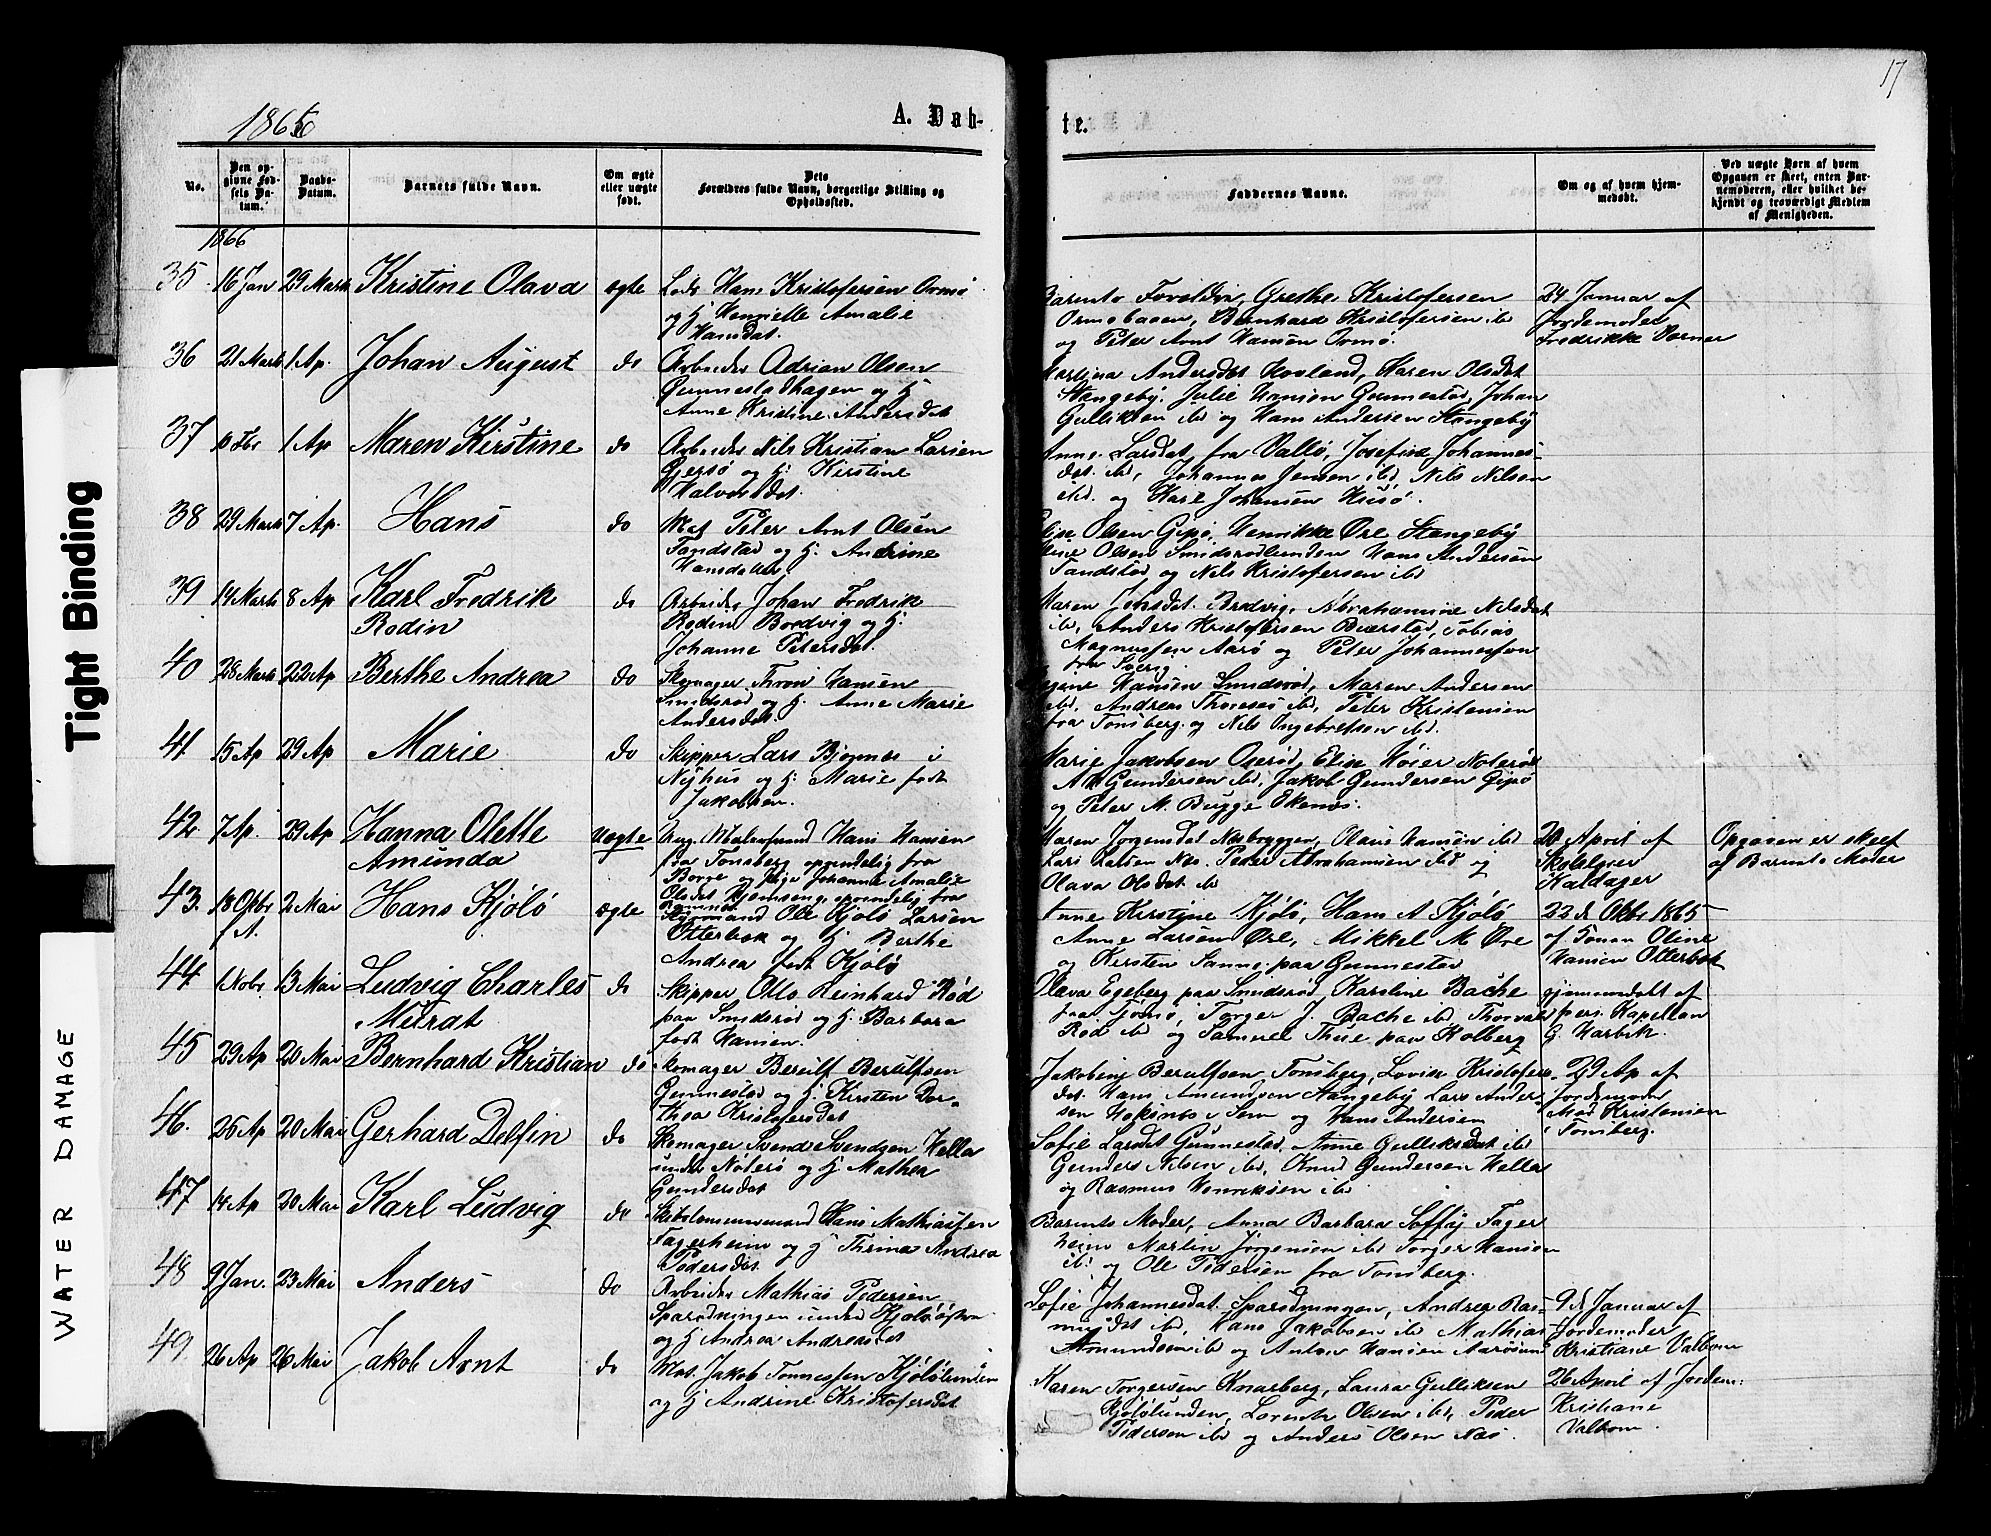 17
1866
A. Døb-
te.
No.
Den op-
givne Fød-
sels Da-
tum.
Daabs-
Datum.
Barnets fulde Navn.
Om ægte
eller uægte
født.
Dets
Forældres fulde Navn, borgerlige Stilling og
Opholdssted.
Faddernes Navne.
Om og af hvem hjem-
medøbt.
Ved uægte Børn af hvem
Opgaven er skeet, enten Bar-
nemoderen, eller hvilket be-
kjendt og troværdigt Medlem
af Menigheden.
1866
35 16 Jan 29 Marts Kristine Olava ægte Lods Hans Kristofersen Ormø
og H. Henriette Amalie
Hansdat.
Barnets Forældre, Grethe Kristofersen
Ormebasen, Bernhard Kristofersen ibd
og Peter Arnt Hansen Ormø.
24 Januar af
Jordemoder
Fredrikke Varner
36 21 Marts 1 Ap. Johan August do Arbeider Adrian Olsen
Gunnestadhagen og H.
Anne Kristine Andersdat
Martina Andersdat Hovland, Karen Olsdat
Stangeby, Julie Hansen Gunnestad, Johan
Gulliksen ibd og Hans Andersen Stangeby
37 1 Ap Maren Kirstine do Arbeider Nils Kristian Larsen
Gjersø og H. Kirstine
Halvorsdat.
Anne Larsdat fra Vallø, Josefine Johannes-
dat ibd, Johannes Jensen ibd, Nils Nilsen
ibd. og Karl Johansen Husø.
38 29 Marts 7 Ap. Hans do Mat. Peter Arnt Olsen
Tandstad og H. Andrine
Hansdatter
Elise Olsen Gipø, Henrikke Øre Stangeby
Oline Olsen Smidsrødlunden Hans Andersen
Tandstad og Nils Kristofersen ibd
39 14 Marts 8 Ap Karl Fredrik
Rodin
do Arbeider Johan Fredrik
Rodin Bredvig og H.
Johanne Petersdat.
Maren Johsdat. Bredvig, Abrahamine Nilsdat
ibd, Anders Kristofersen Buerstad, Tobias
Magnussen Aarø og Peter Johannesson
fra Sverig.
40 28 Marts 22 Ap Berthe Andrea do Skomager Thron Hansen
Smidsrød og H. Anne Marie
Andersdat.
Hansen Smidsrød, Maren Andersen
ibd, Andreas Thoresen ibd, Peter Kristensen
fra Tønsberg og Nils Ingebretsen ibd.
41 15 Ap 29 Ap Marie do Skipper Lars Bjønnes i
Nyhus og H. Marie født
Jakobsen.
Marie Jakobsen Oserød, Elise Høier Noterø
A. M. Gundersen ibd, Jakob Gundersen Gipø
og Peter M. Bugge Ekenes.
42 7 Ap. 29 Ap Hanna Olette
Amunda
uægte Ung. Malersvend Hans Hansen
fra Tønsberg oprindelig fra
Borge og Pige Johanne Amalie
Olsdat Hjemseng, oprindelig fra
Ramnes
Maren Jørgensdat Nesbryggen, Olaus Hansen ibd
Lars Larsen Nes. Peder Abrahamsen ibd og
Olava Olsdat ibd
20 April af
Skolelærer
Kaldager
Opgaven er skeet
af Barnets Moder
43. 18 Oktbr
f. A.
2 Mai Hans Kjølø ægte Styrmand Ole Kjølø Larsen
Otterbæk og H. Berthe
Andrea født Kjølø
Anne Kirstine Kjølø, Hans A. Kjølø
Anne Larsen Øre, Mikkel M. Øre
og Kirsten Sanne paa Gunnestad
22 d. Oktbr 1865
af Oline
Hansen Otterbæk
44. 1 Nobr 13 Mai Ludvig Charles
Murat
do Skipper Otto Reinhard Rød
paa Smidsrød og H. Barbara
født Hansen.
Olava Egeberg paa Smidsrød, Karoline Bache
fra Tjømø, Torger J. Bache ibd, Thorvald
Rød ibd og Samuel Thue paa Kolberg
Hjemmedøbt af
pers. Kapellan
G. Harbek.
45 29 Ap 20 Mai Bernhard Kristian do Skomager Berulf Berulfsen
Gunnestad og H. Kirsten Dor-
thea Kristofersdat
Jakobine Berulfsen Tønsberg, Lovise Kristofers-
dat. Hans Amundsen Stangeby Lars Ander
sen Hoksnes i Sem og Hans Andersen
29 Ap af
Jordemoder
Mad. Kristensen
i Tønsberg.
46. 26 Ap 20 Mai Gerhard Delfin do Skomager Svend Svendsen Hella
under Nøterø og H. Mathea
Gundersdat
Sofie Larsdat Gunnestad, Anne Gulliksdat ibd
Gunder Nilsen ibd, Knud Gundersen Hella
og Rasmus Henriksen ibd.
47 14 Ap 20 Mai Karl Ludvig do Skibstømmermand Hans Mathiassen
Fagerheim og H. Thrine Andrea
Pedersdat.
Barnets Moder, Anna Barbara Soffy Fager
heim Martin Jørgensen ibd Torger Hansen
ibd og Ole Pedersen fra Tønsberg.
48 9 Jan. 23 Mai Anders do Arbeider Mathias Pedersen
Sparødningen under Kjøløø
og H. Andrea Andreasdat
Sofie Johannesdat. Sparødningen, Andrea Ras-
musdat ibd, Hans Jakobsen ibd Mathias
Amundsen ibd og Anton Hansen Aarøsund
9 d. Januar af
Jordemoder
Kristiane Valbom
49. 26 Ap 26 Mai Jakob Arnt do Mat. Jakob Tønnessen Kjølølunden
og H. Andrine Kristofersdat
Karen Torgersen Knarberg, Laura Gulliksen
Kjølølunden, Lorents Olsen ibd, Peder
Pedersen ibd og Anders Olsen Næs.
26 April af Jordem.
Kristiane
Valbom
Tight Binding
WATER DAMAGE